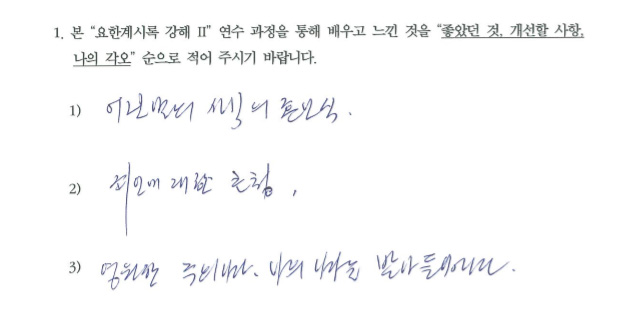 1. 본 “요한계시록 강해 II” 연수 과정을 통해 배우고 느낀 것을 “좋았던 것, 개선할 사항,
나의 각오” 순으로 적어 주시기 바랍니다.
1) 어린양의
2) 대한
3) 영원한 주의나라. 나의 나라를 받아들이리라.